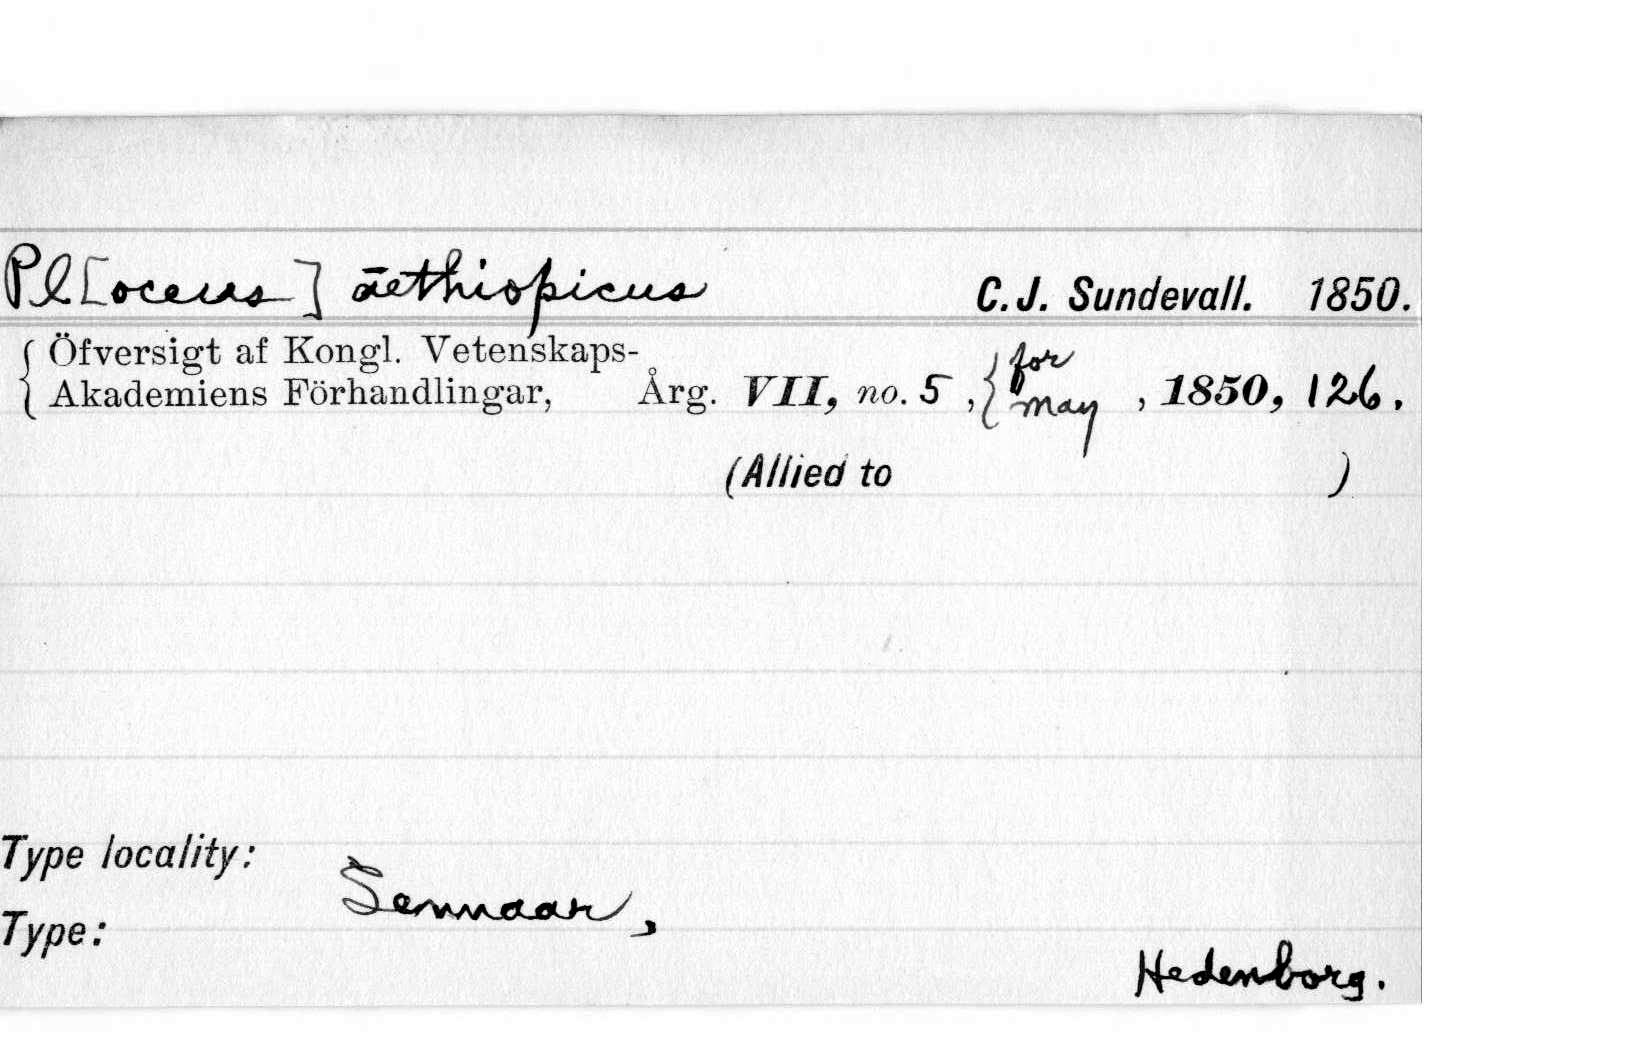 Pl[oceus] aethiopicus C. J. Sundevall. 1850.
{ Öfversigt af Kongl. Vetenskaps-
Akademiens Förhandlingar, Årg. VII, no. 5, { for May, 1850, 126.
(Allied to )
Type locality:
Sennaar,
Type:
Hedenborg.